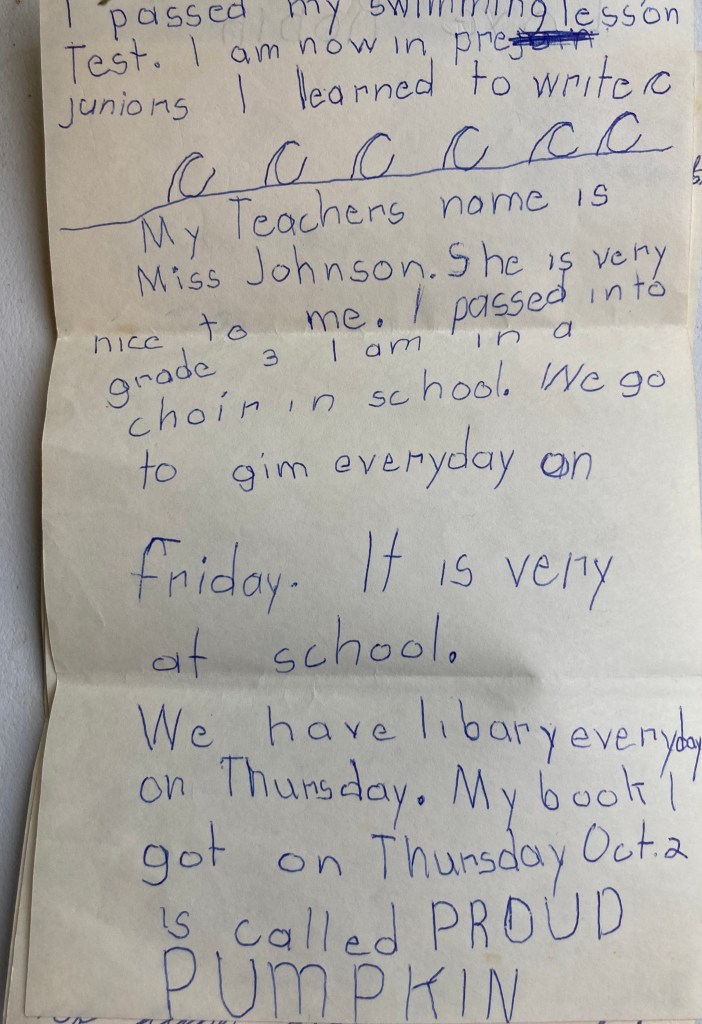 I passed my swimming lesson
Test. I am now in pre
juniors I learned to write c
C C C C C C
My Teachers name is
Miss Johnson. She is very
nice to me. I passed into
grade 3 I am in a
choir in school. We go
to gim everyday on
friday. It is very
at school.
We have libary everyday
on Thursday. My book I
got on Thursday Oct. 2
is called PROUD
PUMPKIN